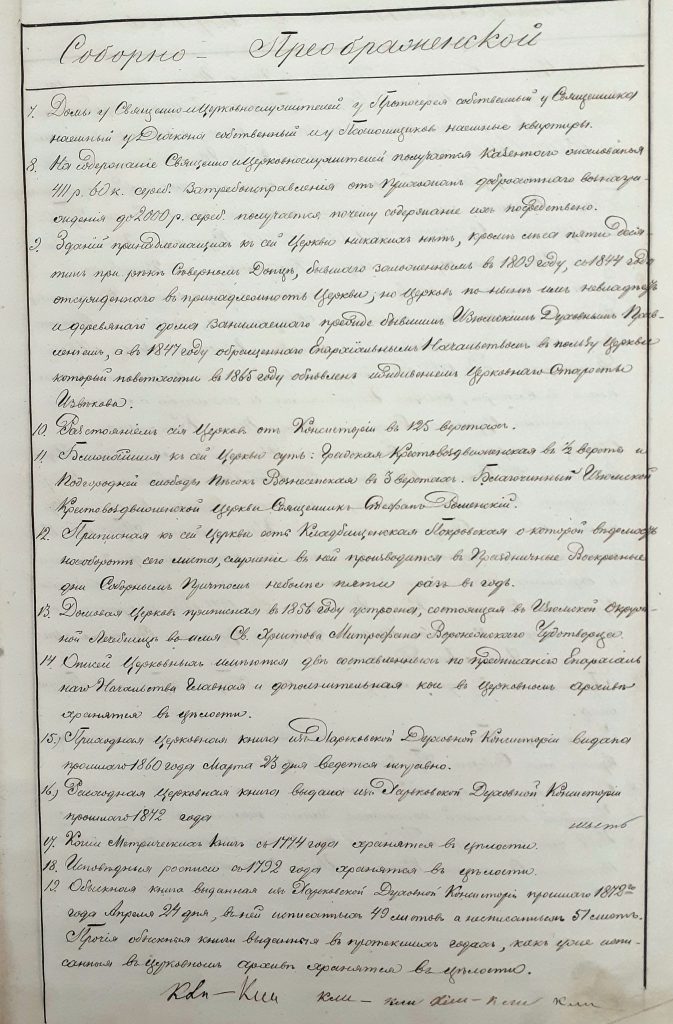 Соборно – Преображенской
7. Домы у Священно и Церковнослужителей у Протоиерея собственный у Священника
наемный у Діакона собственный и у Псаломщиковъ наемные квартиры.
8. На содержаніе Священно и Церковнослужителей получается казеннаго жалованья
411 р. 60 к. сереб. За требоисправленія отъ Прихожанъ доброхотнаго вознагра-
жденія до 2000 р. сереб. получается почему содержаніе ихъ посредственно.
9. Зданій принадлежащихъ къ сей Церкви никакихъ нѣтъ, кромѣ лѣса пяти деся-
тинъ при рѣкѣ Северномъ Донцѣ, бывшаго заложеннымъ въ 1809 году, съ 1844 года
отсужденнаго въ принадлежность Церкви; но Церковь по нынѣ имъ невладѣетъ
и деревянаго дома занимаемаго прежде бывшимъ Изюмскимъ Духовнымъ Прав-
леніемъ, а въ 1847 году обращеннаго Епархіальнымъ Начальствомъ въ пользу Церкви
который поветхости въ 1865 году обновленъ иждивеніемъ Церковнаго Старосты
10. Разстояніемъ сія Церковь отъ Консисторіи въ 125 верстахъ.
11. Ближайшія къ сей Церкви суть: Градская Крестовоздвиженская въ 1/2 верста и
Подгородней слободы Пѣсокъ Вознесенская въ 3 верстахъ. Благочинный Изюмской
Крестовоздвиженской Церкви Священникъ Стефанъ
12. Приписная къ сей Церкви есть Кладбищенская Покровская о которой вѣдомость
наоборотѣ сего листа, служеніе въ ней производится въ Праздничные Воскресные
дни Соборнымъ Причтомъ неболѣе пяти разъ въ годъ.
13. Домовая Церковь приписная въ 1856 году устроена, состоящая въ Изюмской Окруж-
ной Лечебницѣ во имя Св. Христова Митрофана Воронежскаго Чудотворца
14. Описей Церковныхъ имѣются двѣ составленныхъ по предписанію Епархіаль
наго Начальства Главная и дополнительная кои въ Церковномъ архивѣ
хранятся въ цѣлости.
15.) Приходная Церковная книга изъ Харьковской Духовной Консисторіи выдана
прошлаго 1860 года Марта 23 дня ведется исправно.
16.) Расходная Церковная книга выдана изъ Харьковской Духовной Консисторіи
прошлаго 1872 года
17. Копіи Метрическихъ книгъ съ 1774 года хранятся въ цѣлости.
18. Исповѣдныя росписи съ 1792 года хранятся въ цѣлости.
19 Обыскная книга выданная изъ Харьковской Духовной Консисторіи прошлаго 1872го
года Апреля 24 дня, въ ней исписанныхъ 49 листовъ а неисписанныхъ 51 листъ.
Прочія обыскныя книги выданныя въ протекшихъ годахъ, какъ уже испи-
санныя въ Церковномъ архивѣ хранятся въ цѣлости.